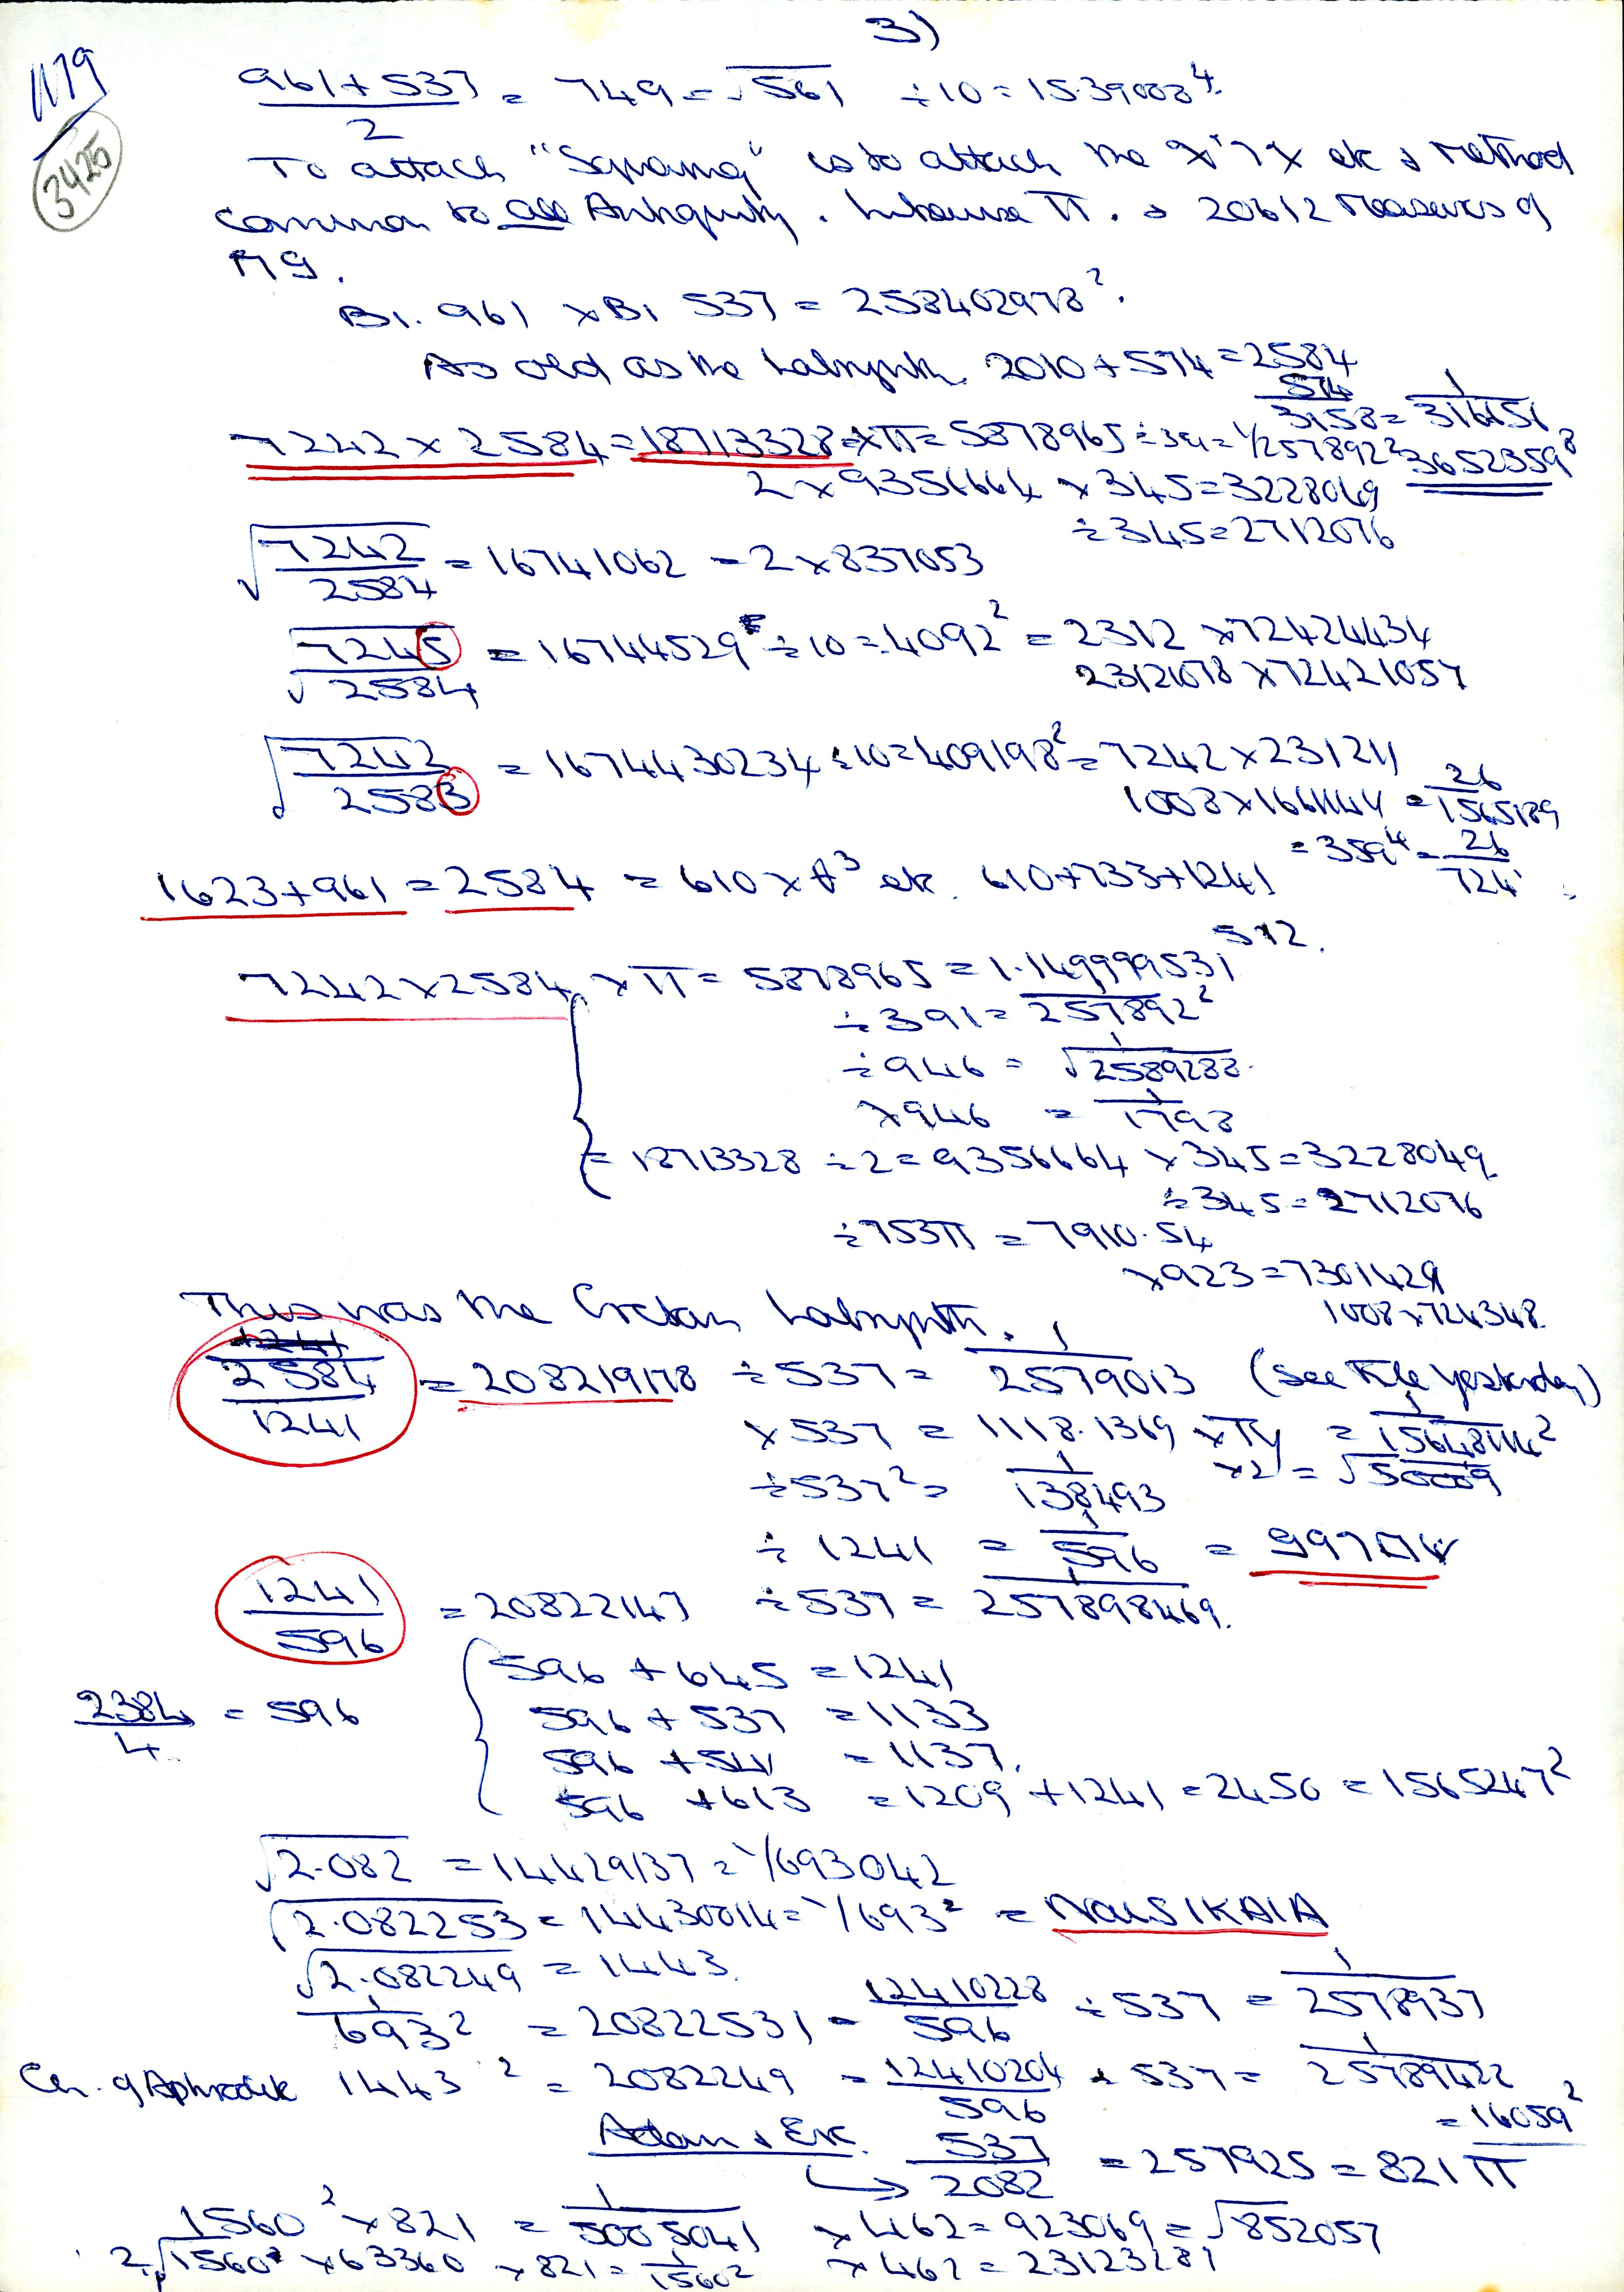 3)
1179
3425
961 + 537 / 2 = 749 = √561 ÷ 10 = 1539008⁴
To attach "Squaring" is to attach the X'7X etc & method
common to all Antiquity. Likewise π. & 20612 Measures of
M9.
B1. 961 × B1 537 = 258402978².
As old as the Labrynth. 2010 + 574 = 2584
574
3158 = 1/316651
7242 × 2584 = 18713328 × π = 5878965 ÷ 391 = 1/257892² 3652359⁸
2 × 9356664 × 345 = 3228049
÷ 345 = 2712076
√7242/2584 = 16741062 = 2 × 837053
√7245/2584 = 16744529 ÷ 10 = 4092² = 2312 × 72424434
23121078 × 72421057
√7242/2583 = 1674430234 ÷ 10 = 409198² = 7242 × 231211
1008 × 1661144 = 26/1565189
= 359⁴ = 26/724
1623 + 961 = 2584 = 610 × θ³ etc. 610 + 733 + 1241
7242 × 2584 × π = 5878965 = 1.149999531⁵¹².
÷ 391 = 1/257892²
÷ 946 = 1/√2589288
× 946 = 1/1798
= 18713328 ÷ 2 = 9356664 × 345 = 3228049
÷ 345 = 2712076
÷ 753π = 7910.54
× 923 = 7301429
1008 × 724348
This was the Cretan Labrynth.
2584/1241 = 208219178 ÷ 537 = 1/2579013 (See File yesterday)
× 537 = 1118.1369 × π = 1/15648114²
× 2 = √50009
÷ 537² = 1/138493
÷ 1241 = 1/596 =
1241/596 = 20822147 ÷ 537 = 1/257898469.
596 + 645 = 1241
2384/4 = 596
596 + 537 = 1133
596 + 541 = 1137.
596 + 613 = 1209 + 1241 = 2450 = 1565247²
√2.082 = 14429137 = 1/693042
√2.082253 = 14430014 = 1/693² = NAUSIKAIA
√2.082249 = 1443
1/693² = 20822531 = 12410228/596 ÷ 537 = 1/2578937
Ch. of Aphrodite 1443² = 2082249 = 12410204/596 ÷ 537 = 1/25789422
= 16059²
Adam & Eve. 537/2082 = 257925 = 821π
1560² × 821 = 1/5005041 × 462 = 923069 = √852057
2√1560² × 63360 × 821 = 1/1560² × 462 = 23123281